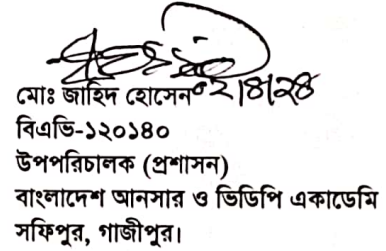 ০২/৪/২৪
মোঃ জাহিদ হোসেন
বিএভি-১২০১৪০
উপপরিচালক (প্রশাসন)
বাংলাদেশ আনসার ও ভিডিপি একাডেমি
সফিপুর, গাজীপুর।